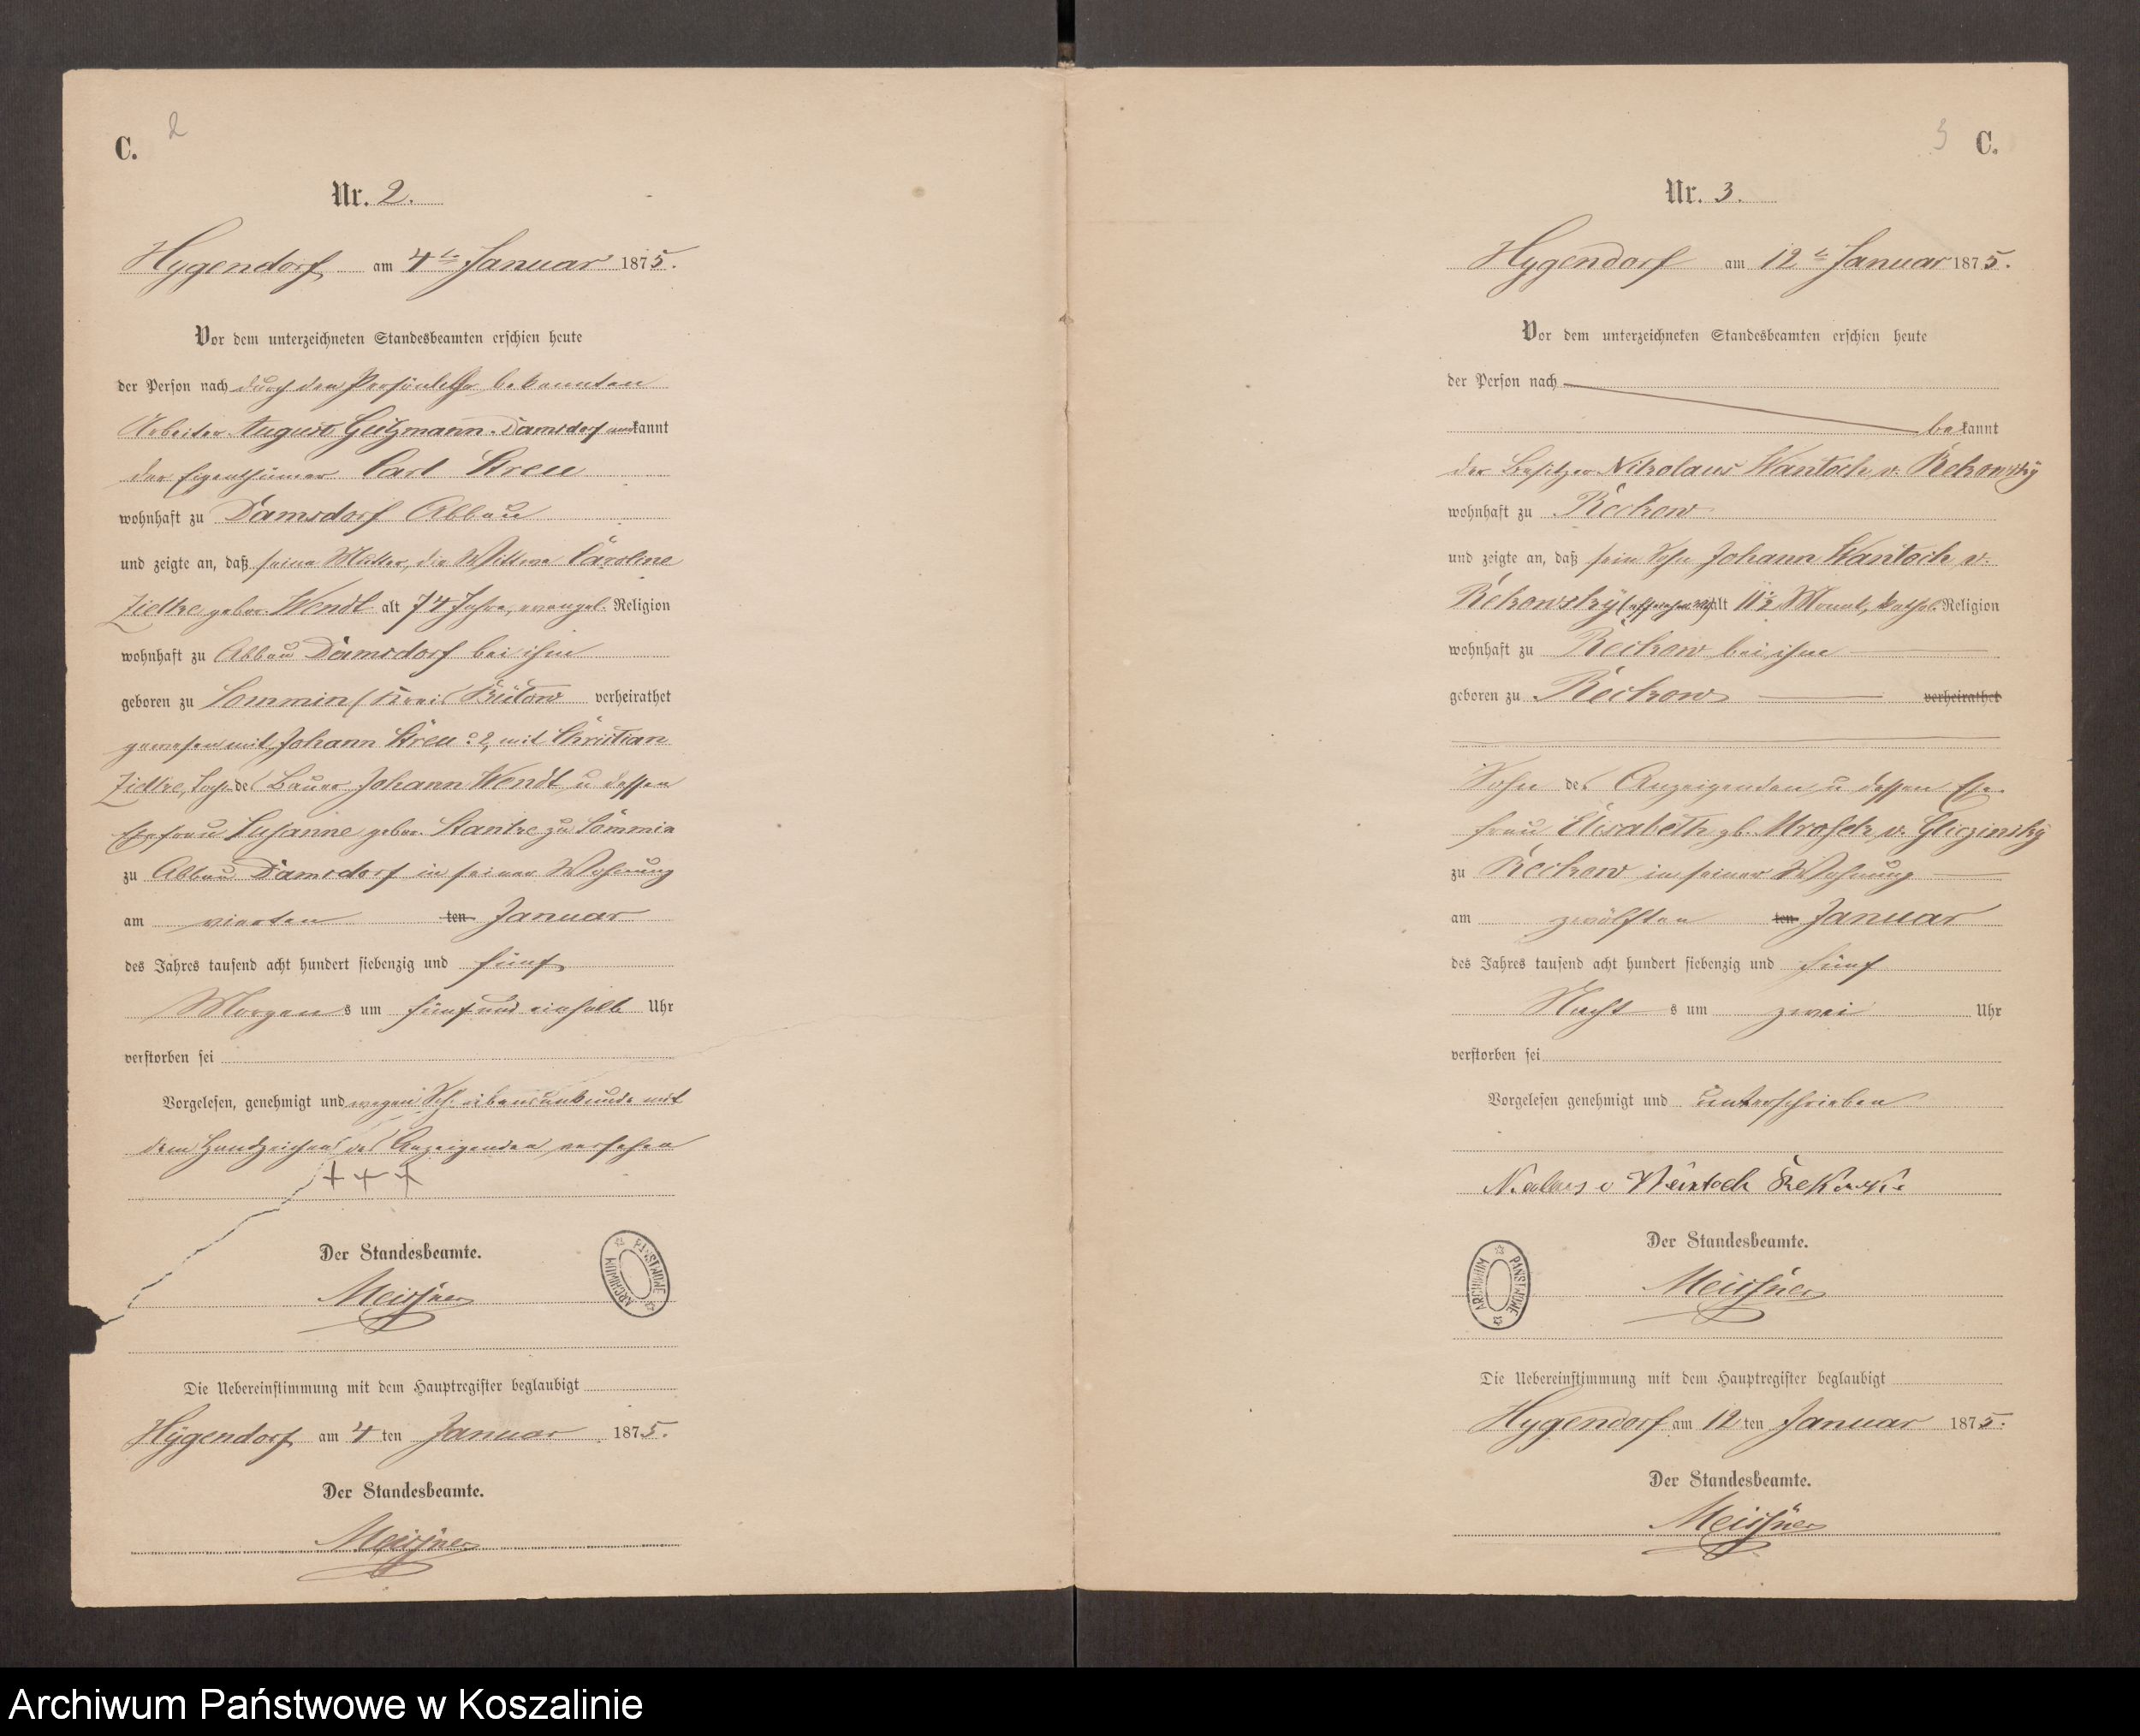 C. 2
Nr. 2.
Hygendorf am 4te Januar 1875.
Vor dem unterzeichneten Standesbeamten erschien heute
der Person nach durch den Persönlich bekannten
Arbeiter August Gutzmann Damsdorf anerkannt
der Eigenthümer Carl Streu
wohnhaft zu Damsdorf Abbau
und zeigte an, daß seine Mutter, die Wittwe Caroline
Zielke gebor. Wendt alt 74 Jahre, evangel. Religion
wohnhaft zu Abbau Damsdorf bei ihm
geboren zu Sommin (Kreis Bütow verheirathet
gewesen mit Johann Streu 2, mit Christian
Zielke, Tocht. des Bauer Johann Wendt u dessen
Ehefrau Susanne gebor. Stantke zu Sommin
zu Abbau Damsdorf in seiner Wohnung
am vierten ten Januar
des Jahres tausend acht hundert siebenzig und fünf
Morgens um fünf und einhalb Uhr
verstorben sei
Vorgelesen, genehmigt und wegen Schreibensunkunde mit
dem Handzeichen des Anzeigenden versehen
+++
Der Standesbeamte.
Meissner
ARCHIWUM PAŃSTWOWE
Die Uebereinstimmung mit dem Hauptregister beglaubigt
Hygendorf am 4ten Januar 1875.
Der Standesbeamte.
Meissner
3 C.
Nr. 3.
Hygendorf am 12te Januar 1875.
Vor dem unterzeichneten Standesbeamten erschien heute
der Person nach
bekannt
der Besitzer Nikolaus Wantoch v. Rekowsky
wohnhaft zu Reckow
und zeigte an, daß sein Sohn Johann Wantoch v.
Rekowsky alt 11½ Monat, kathol. Religion
wohnhaft zu Reckow bei ihm
geboren zu Reckow verheirathet
Sohn des Anzeigenden u dessen Ehe-
frau Elisabeth gb. Mrosek v. Gliczinsky
zu Reckow in seiner Wohnung
am zwölften ten Januar
des Jahres tausend acht hundert siebenzig und fünf
Nachts um zwei Uhr
verstorben sei
Vorgelesen genehmigt und unterschrieben
v Wantoch Rekowski
Der Standesbeamte.
Meissner
ARCHIWUM PAŃSTWOWE
Die Uebereinstimmung mit dem Hauptregister beglaubigt
Hygendorf am 12ten Januar 1875.
Der Standesbeamte.
Meissner
Archiwum Państwowe w Koszalinie